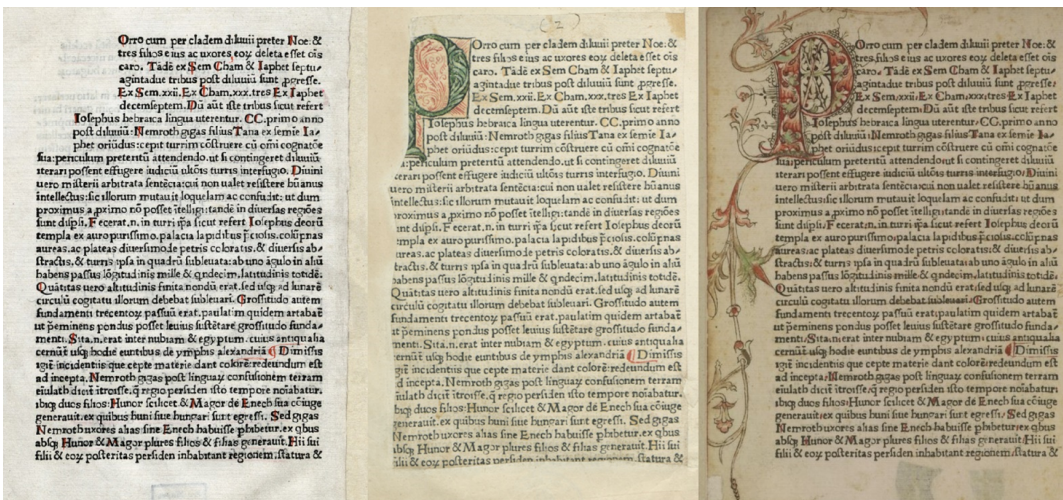 Orro cum per cladem diluuii preter Noe: &
tres filios eius ac uxores eoꝝ deleta esset oīs
caro. Tādē ex Sem Cham & Iaphet septu-
agintadue tribus post diluuiū sunt ꝓgresse.
Ex Sem.xxii.Ex Cham.xxx.tres Ex Iaphet
decemseptem. Dū aūt iste tribus sicut refert
Iosephus hebraica lingua uterentur. CC.primo anno
post diluuiū: Nemroth gigas filius Tana ex semīe Ia-
phet oriūdus: cepit turrim cōstruere cū oīmi cognatōe
sua: periculum preteritū attendendo. ut si contingeret diluuiū
iterari possent effugere iudiciū ultōis turris interfugio. Diuini
uero misterii arbitrata sentētia: cui non ualet resistere hūanus
intellectus: sic illorum mutauit loquelam ac confudit: ut dum
proximus a ꝓximo nō posset ītelligi: tandē in diuersas regiōes
sunt dispersi. Fecerat.n. in turri ip̄a sicut refert Iosephus deorū
templa ex auro purissimo. palacia lapidibus p̄ciosis. colūpnas
aureas. ac plateas diuersimode petris coloratis. & diuersis ab-
stractis. & turris ipsa in quadrū subleuata: ab uno āgulo in aliū
habens passus lōgitudinis mille & qndecim. latitudinis totidē.
Quātitas uero altitudinis finita nondū erat. sed usqꝫ ad lunarē
circulū cogitatu illorum debebat subleuari. Grossitudo autem
fundamenti trecentoꝝ passuū erat. paulatim quidem artabat̄
ut p̄eminens pondus posset leuius sustētare grossitudo funda-
menti. Sita.n.erat inter nubiam & egyptum. cuius antiqualia
cernūt̄ usqꝫ hodie euntibus de ymphis alexandriā ¶ Dimissis
igit̄ incidentiis que cepte materie dant colorē: redeundum est
ad incepta. Nemroth gigas post linguaꝝ confusionem terram
euilath dicit̄ ītroisse. q̄ regio persiden isto tempore noīabatur.
ibiqꝫ duos filios: Hunor scilicet & Magor de Enech sua cōiuge
generauit. ex quibus huni siue hungari sunt egressi. Sed gigas
Nemroth uxores alias sine Enech habuisse phibetur. ex qbus
absqꝫ Hunor & Magor plures filios & filias generauit. Hii sui
filii & eoꝝ posteritas persiden inhabitant regionem. statura &
(2)
Orro cum per cladem diluuii preter Noe: &
tres filios eius ac uxores eoꝝ deleta esset oīs
caro. Tādē ex Sem Cham & Iaphet septu-
agintadue tribus post diluuiū sunt ꝓgresse.
Ex Sem.xxii.Ex Cham.xxx.tres Ex Iaphet
decemseptem. Dū aūt iste tribus sicut refert
Iosephus hebraica lingua uterentur. CC.primo anno
post diluuiū: Nemroth gigas filius Tana ex semīe Ia-
phet oriūdus: cepit turrim cōstruere cū oīmi cognatōe
a: periculum preteritū attendendo. ut si contingeret diluuiū
iterari possent effugere iudiciū ultōis turris interfugio. Diuini
uero misterii arbitrata sentētia: cui non ualet resistere hūanus
intellectus: sic illorum mutauit loquelam ac confudit: ut dum
proximus a ꝓximo nō posset ītelligi: tandē in diuersas regiōes
sunt dispersi. Fecerat.n. in turri ip̄a sicut refert Iosephus deorū
templa ex auro purissimo. palacia lapidibus p̄ciosis. colūpnas
aureas. ac plateas diuersimode petris coloratis. & diuersis ab-
stractis. & turris ipsa in quadrū subleuata: ab uno āgulo in aliū
habens passus lōgitudinis mille & qndecim. latitudinis totidē.
Quātitas uero altitudinis finita nondū erat. sed usqꝫ ad lunarē
circulū cogitatu illorum debebat subleuari. Grossitudo autem
fundamenti trecentoꝝ passuū erat. paulatim quidem artabat̄
ut p̄eminens pondus posset leuius sustētare grossitudo funda-
menti. Sita.n.erat inter nubiam & egyptum. cuius antiqualia
cernūt̄ usqꝫ hodie euntibus de ymphis alexandriā ¶ Dimissis
igit̄ incidentiis que cepte materie dant colorē: redeundum est
d incepta. Nemroth gigas post linguaꝝ confusionem terram
euilath dicit̄ ītroisse. q̄ regio persiden isto tempore noīabatur.
ibiqꝫ duos filios: Hunor scilicet & Magor de Enech sua cōiuge
generauit. ex quibus huni siue hungari sunt egressi. Sed gigas
Nemroth uxores alias sine Enech habuisse phibetur. ex qbus
absqꝫ Hunor & Magor plures filios & filias generauit. Hii sui
filii & eoꝝ posteritas persiden inhabitant regionem. statura &
POrro cum per cladem diluuii preter Noe: &
tres filios eius ac uxores eoꝝ deleta esset oīs
caro. Tādē ex Sem Cham & Iaphet septu-
agintadue tribus post diluuiū sunt ꝓgresse.
Ex Sem.xxii.Ex Cham.xxx.tres Ex Iaphet
decemseptem. Dū aūt iste tribus sicut refert
Iosephus hebraica lingua uterentur. CC.primo anno
post diluuiū: Nemroth gigas filius Tana ex semīe Ia-
phet oriūdus: cepit turrim cōstruere cū oīmi cognatōe
sua: periculum preteritū attendendo. ut si contingeret diluuiū
iterari possent effugere iudiciū ultōis turris interfugio. Diuini
uero misterii arbitrata sentētia: cui non ualet resistere hūanus
intellectus: sic illorum mutauit loquelam ac confudit: ut dum
proximus a ꝓximo nō posset ītelligi: tandē in diuersas regiōes
sunt dispersi. Fecerat.n. in turri ip̄a sicut refert Iosephus deorū
templa ex auro purissimo. palacia lapidibus p̄ciosis. colūpnas
aureas. ac plateas diuersimode petris coloratis. & diuersis ab-
stractis. & turris ipsa in quadrū subleuata: ab uno āgulo in aliū
habens passus lōgitudinis mille & qndecim. latitudinis totidē.
Quātitas uero altitudinis finita nondū erat. sed usqꝫ ad lunarē
circulū cogitatu illorum debebat subleuari. Grossitudo autem
fundamenti trecentoꝝ passuū erat. paulatim quidem artabat̄
ut p̄eminens pondus posset leuius sustētare grossitudo funda-
menti. Sita.n.erat inter nubiam & egyptum. cuius antiqualia
cernūt̄ usqꝫ hodie euntibus de ymphis alexandriā ¶ Dimissis
igit̄ incidentiis que cepte materie dant colorē: redeundum est
ad incepta. Nemroth gigas post linguaꝝ confusionem terram
euilath dicit̄ ītroisse. q̄ regio persiden isto tempore noīabatur.
ibiqꝫ duos filios: Hunor scilicet & Magor de Enech sua cōiuge
generauit. ex quibus huni siue hungari sunt egressi. Sed gigas
Nemroth uxores alias sine Enech habuisse phibetur. ex qbus
absqꝫ Hunor & Magor plures filios & filias generauit. Hii sui
filii & eoꝝ posteritas persiden inhabitant regionem. statura &